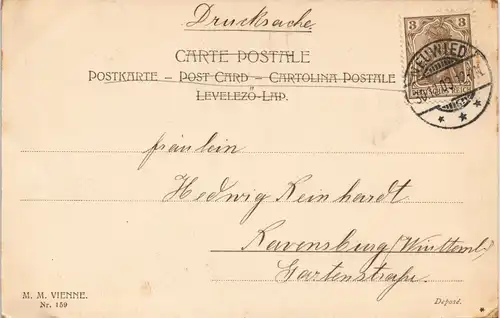 Drucksache
3 3
NEUWIED
CARTE POSTALE
POSTKARTE – POST CARD – CARTOLINA POSTALE
LEVELEZŐ-LAP.
fräulein
Hedwig Reinhardt
Ravensburg (Württemb.)
Gartenstraße.
M. M. VIENNE.
Nr. 159
Deposé.